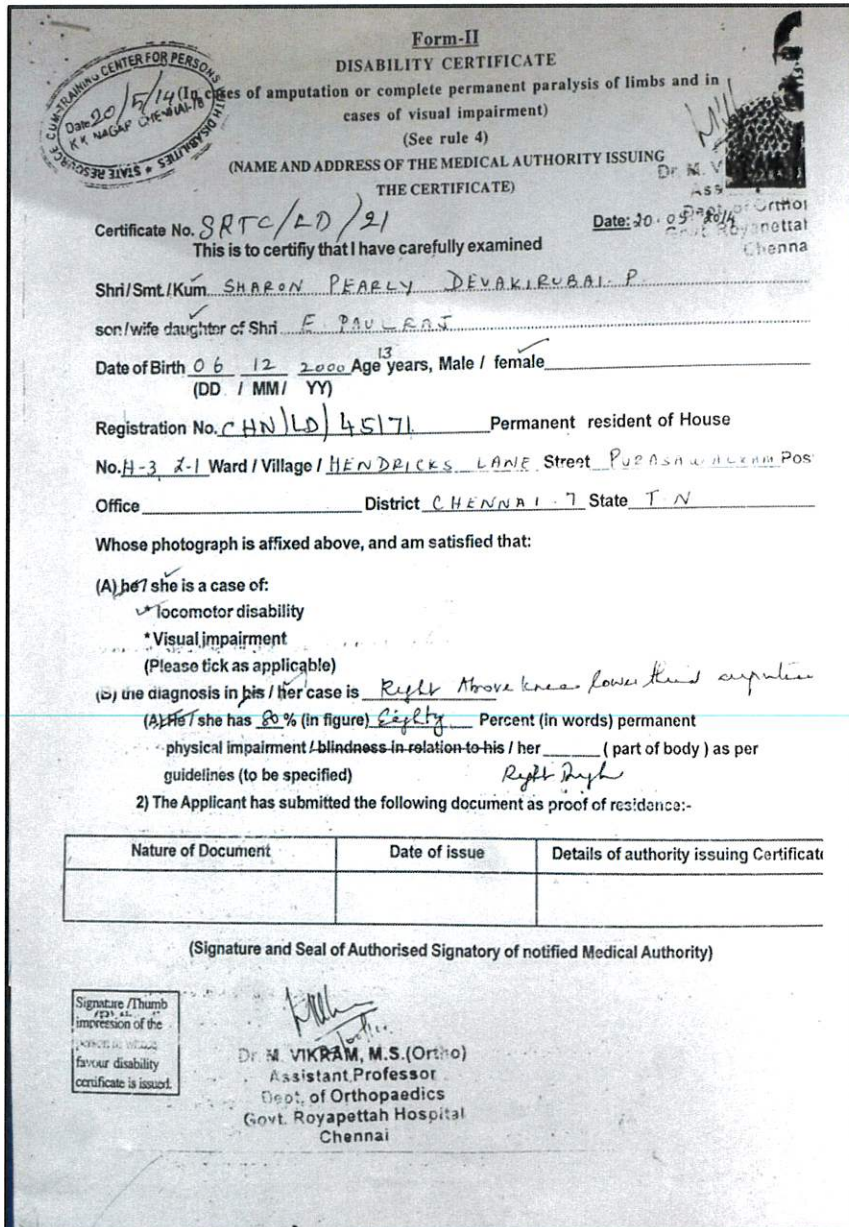 Form-II
DISABILITY CERTIFICATE
(In cases of amputation or complete permanent paralysis of limbs and in
cases of visual impairment)
(See rule 4)
(NAME AND ADDRESS OF THE MEDICAL AUTHORITY ISSUING
THE CERTIFICATE)
STATE RESOURCE CUM-TRAINING CENTER FOR PERSONS WITH DISABILITIES ★
Date 20/5/14
K K NAGAR CHENNAI-78
Dr. M. V
Ass
Dept. of Orthop
Govt. Royapettah
Chenna
Certificate No. SRTC/LD/21 Date: 20.05.2014
This is to certifiy that I have carefully examined
Shri/Smt./Kum. SHARON PEARLY DEVAKIRUBAI. P
son/wife daughter of Shri E PAULRAJ
Date of Birth 06 12 2000 Age 13 years, Male / female
(DD / MM/ YY)
Registration No. CHN/LD/45171 Permanent resident of House
No. H-3 2-1 Ward / Village / HENDRICKS LANE Street PURASAWALKAM Pos
Office District CHENNAI.7 State T N
Whose photograph is affixed above, and am satisfied that:
(A) he / she is a case of:
* locomotor disability
* Visual impairment
(Please tick as applicable)
(B) the diagnosis in his / her case is Right Above knee lower third amputation
(A) He / she has 80 % (in figure) Eighty Percent (in words) permanent
physical impairment / blindness in relation to his / her ( part of body ) as per
guidelines (to be specified) Right Thigh
2) The Applicant has submitted the following document as proof of residence:-
Nature of Document Date of issue Details of authority issuing Certificate
(Signature and Seal of Authorised Signatory of notified Medical Authority)
Signature /Thumb
impression of the
person in whose
favour disability
certificate is issued.
Dr. M. VIKRAM, M.S.(Ortho)
Assistant Professor
Dept. of Orthopaedics
Govt. Royapettah Hospital
Chennai